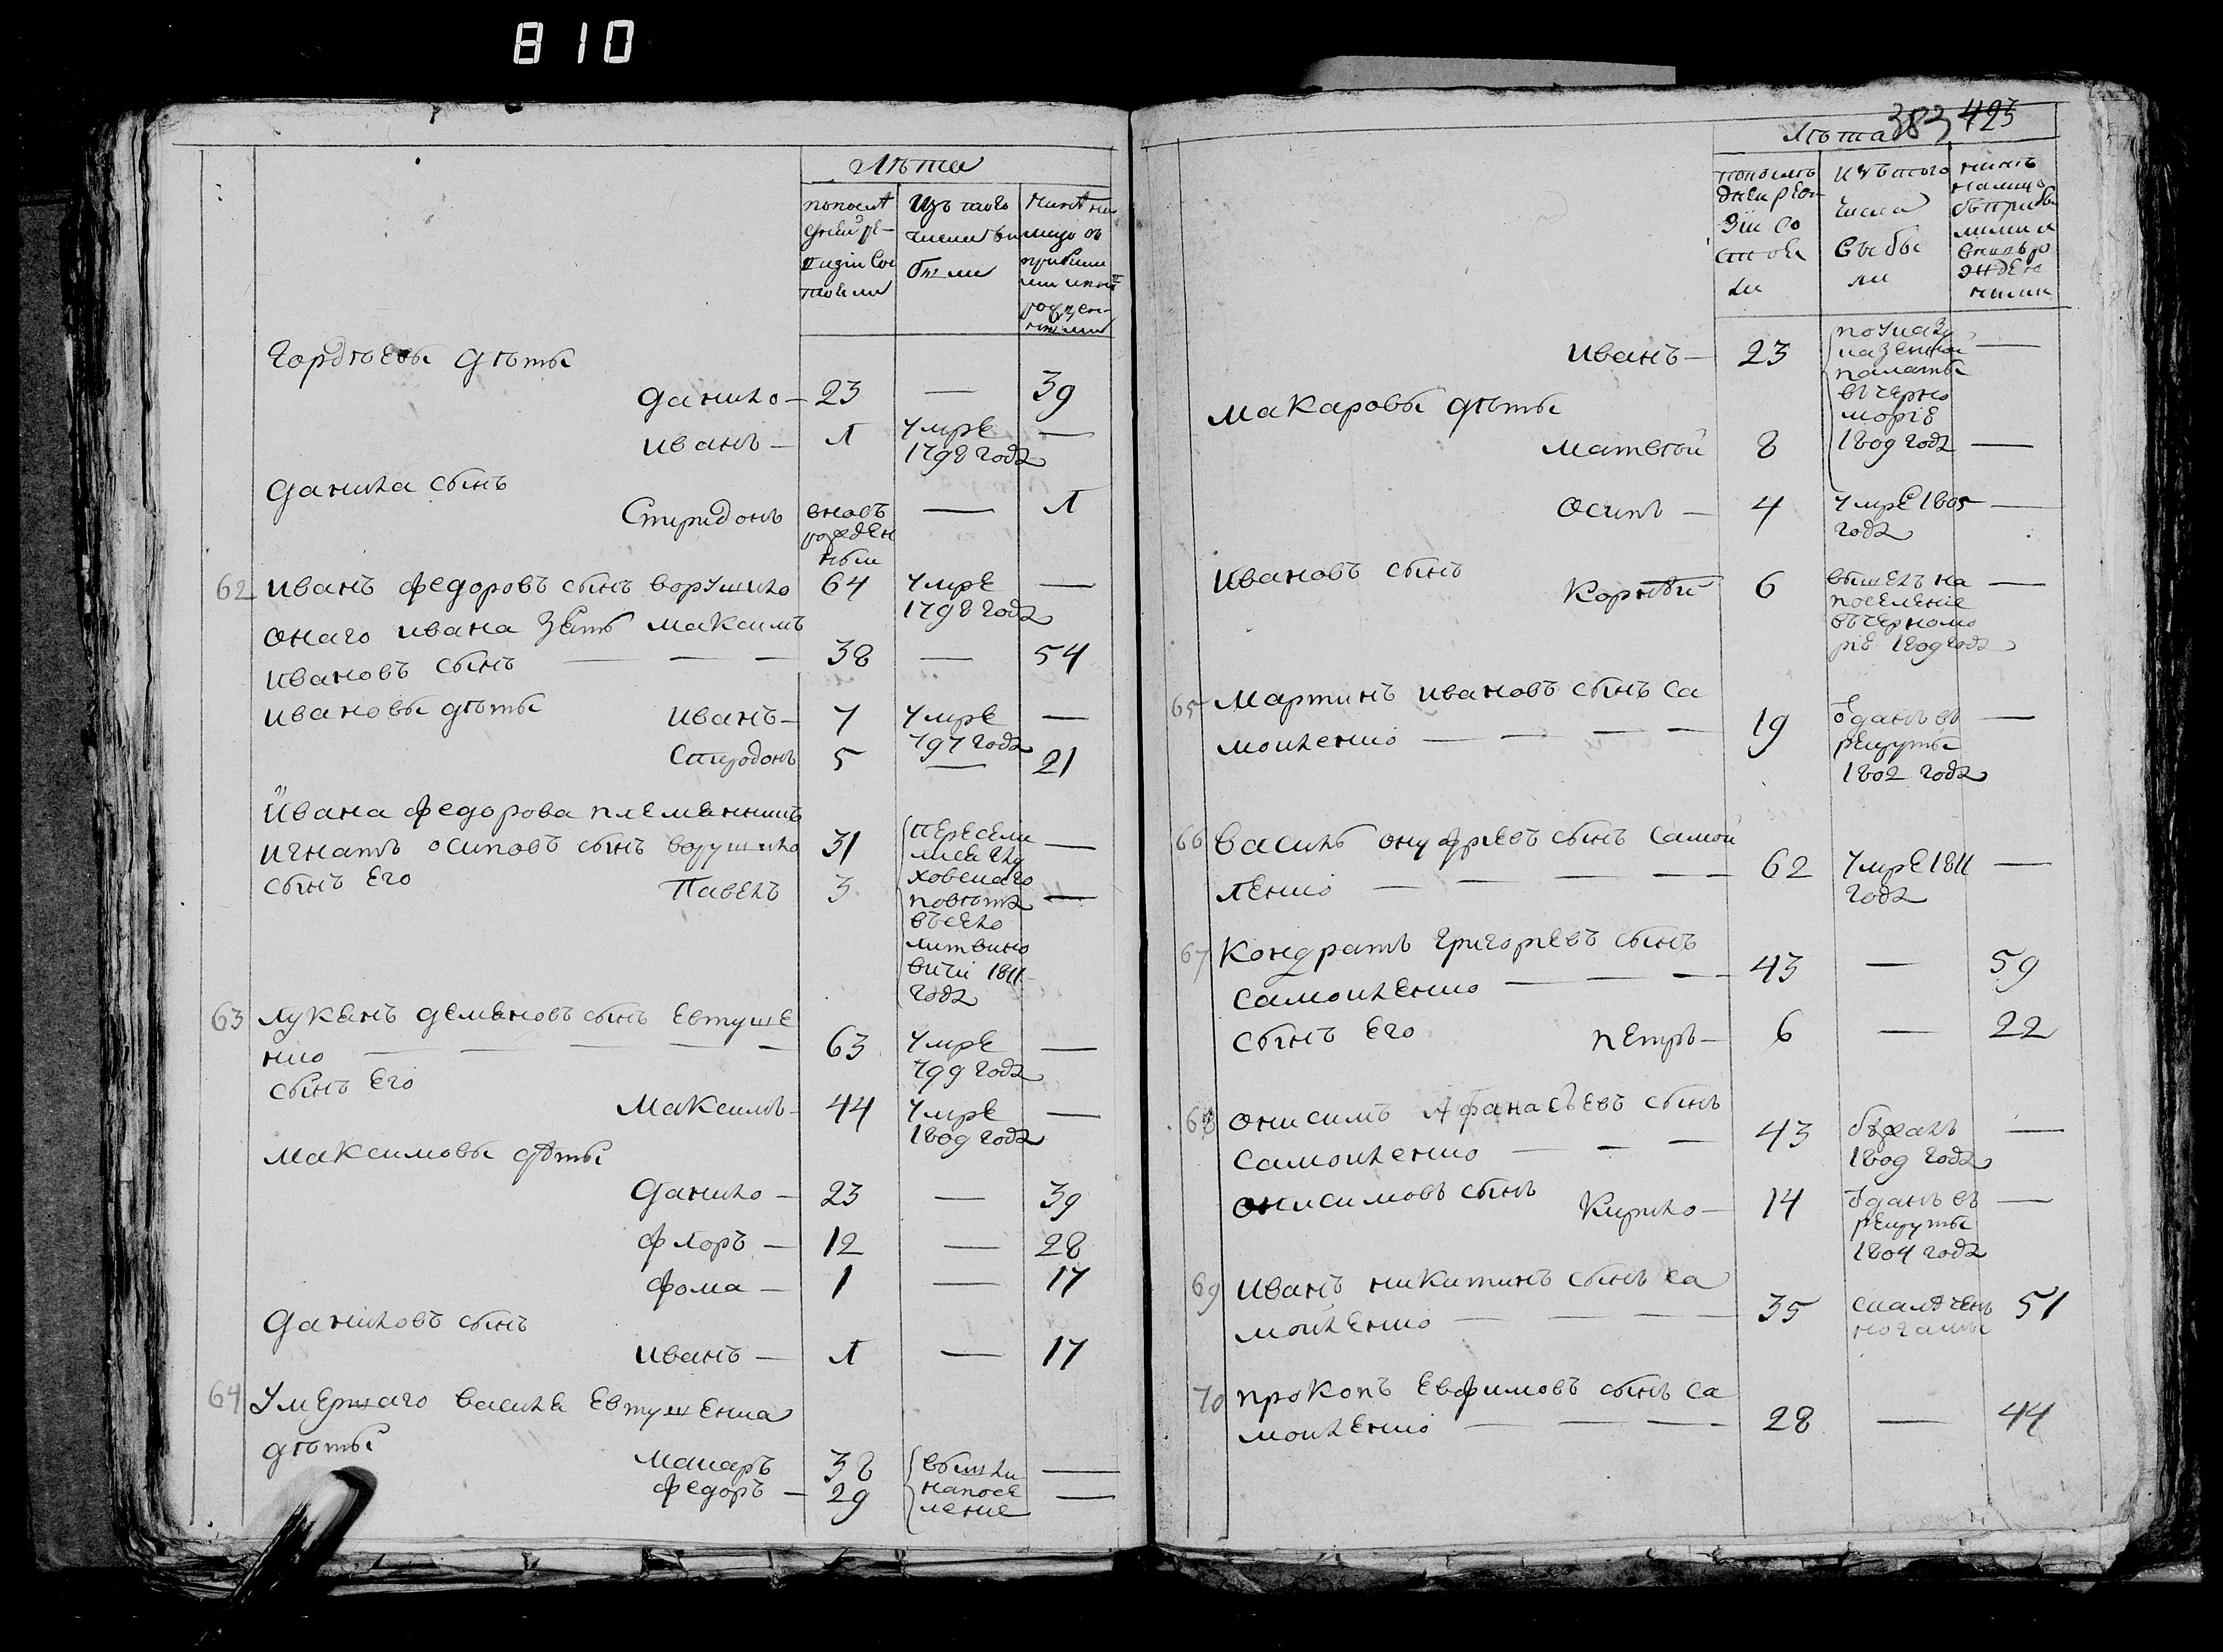 810
Лѣта
по послѣ
дней ре-
визіи сос
тояли
Изъ того
числа вы
были
Нынѣ на
лицо съ
прибыли
ми и вно
рожден-
ными
Гордѣевы дѣты
Данило — 23 — 39
Иванъ — Л умре —
1798 года
Данила сынъ
Спиридонъ вновъ — Л
рожден
ный
62 Иванъ Федоровъ сынъ Ворушило 64 умре —
1798 года
оного Ивана зять Максимъ
Ивановъ сынъ — — — 38 — 54
Ивановы дѣты Иванъ — 7 умре —
797 года
Спиродонъ 5 — 21
Ивана Федорова племянникъ
Игнатъ Осиповъ сынъ Ворушило 31 пересели —
лися Глу
сынъ его Павелъ 3 ховскаго
повѣта —
въ село
литвино
вичи 1811
года
63 Лукянъ Демяновъ сынъ Евтуше
нко — — — — — 63 умре —
799 года
сынъ его
Максимъ — 44 умре —
1809 года
Максимовы дѣты
Данило — 23 — 39
Флоръ — 12 — 28
Фома — 1 — 17
Даниловъ сынъ
Иванъ — Л — 17
64 Умершаго Василя Евтушенка
дѣты
Макаръ 38 вышли —
Федоръ — 29 на посе —
ление
383 423
Лѣта
по послѣ
дней реви
зіи со
стоя
ли
Изъ того
числа
выбы
ли
нынѣ
налицо
съ прибы
лими и
вновь ро
жден
ними
Иванъ — 23 по указу —
казенной
палаты
въ черно
морiе
1809 года
Макаровы дѣты
Матвѣй 8 —
Осипъ — 4 умре 1805 —
года
Ивановъ сынъ
Корнѣй 6 вышелъ на —
поселеніе
въ черномо
ріе 1809 года
65 Мартинъ Ивановъ сынъ Са
мойленко — — — — 19 ѿданъ въ —
рекруты
1802 года
66 Василь Онуфріевъ сынъ Самой
ленко — — — — 62 умре 1811 —
года
67 Кондратъ Григорьевъ сынъ
Самойленко — — — 43 — 59
сынъ его Петръ — 6 — 22
68 Онисимъ Афанасьевъ сынъ
Самойленко — — — 43 бѣжалъ —
1809 года
Онисимовъ сынъ Кирило — 14 ѿданъ въ —
рекруты
1804 года
69 Иванъ Никитинъ сынъ Са
мойленко — — — 35 51
ногамы
70 Прокопъ Евфимовъ сынъ Са
мойленко — — — 28 — 44